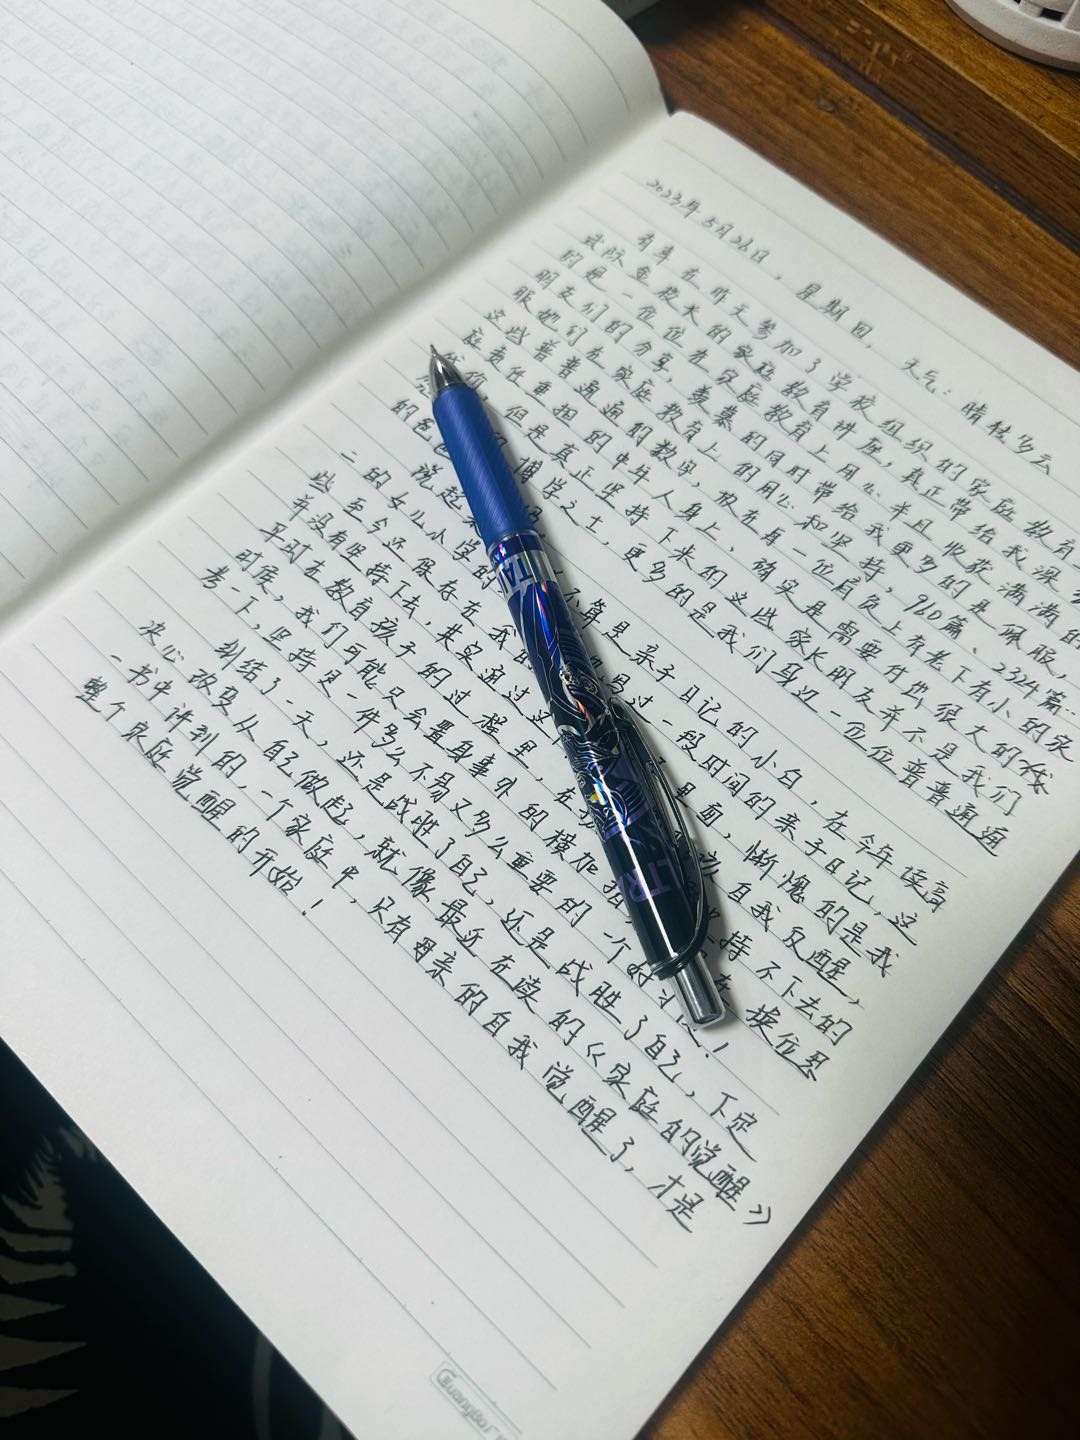 2023年5月26日，星期四，天气：晴转多云
有幸在昨天参加了学校组织的家庭教育
庞大的家庭教育讲座，真正带给我深
的是一位位在家庭教育上用心并且收获满满的
朋友们的分享，羡慕的同时带给我更多的是佩服，
服他们在家庭教育上的用心和坚持，960篇、2324篇…
这些普普通通的数字，放在每一位肩负上有老下有小的家
庭责任重担的中年人身上，确实是需要付出很大的
代价，但是真正坚持下来的这些家长朋友并不是我们
博学之士，更多的是我们身边一位位普普通通
的
说起 不算是亲子日记的小白，在今年读高
二的女儿小学的 过一段时间的亲子日记，这
些至今还保存在我的 里面，惭愧的是我
并没有坚持下去，其实通过这 自我反醒，
平时在教育孩子的过程里，在 持不下去的
时候，我们可能只会置身事外的横加指 换位思
考一下，坚持是一件多么不易又多么重要的一个 ！
纠结了一天，还是战胜了自己，还是战胜了自己，下定
决心改变从自己做起，就像最近在读的《家庭的觉醒》
一书中讲到的，一个家庭中，只有母亲的自我觉醒了，才是
整个家庭觉醒的开始！
GuangBo